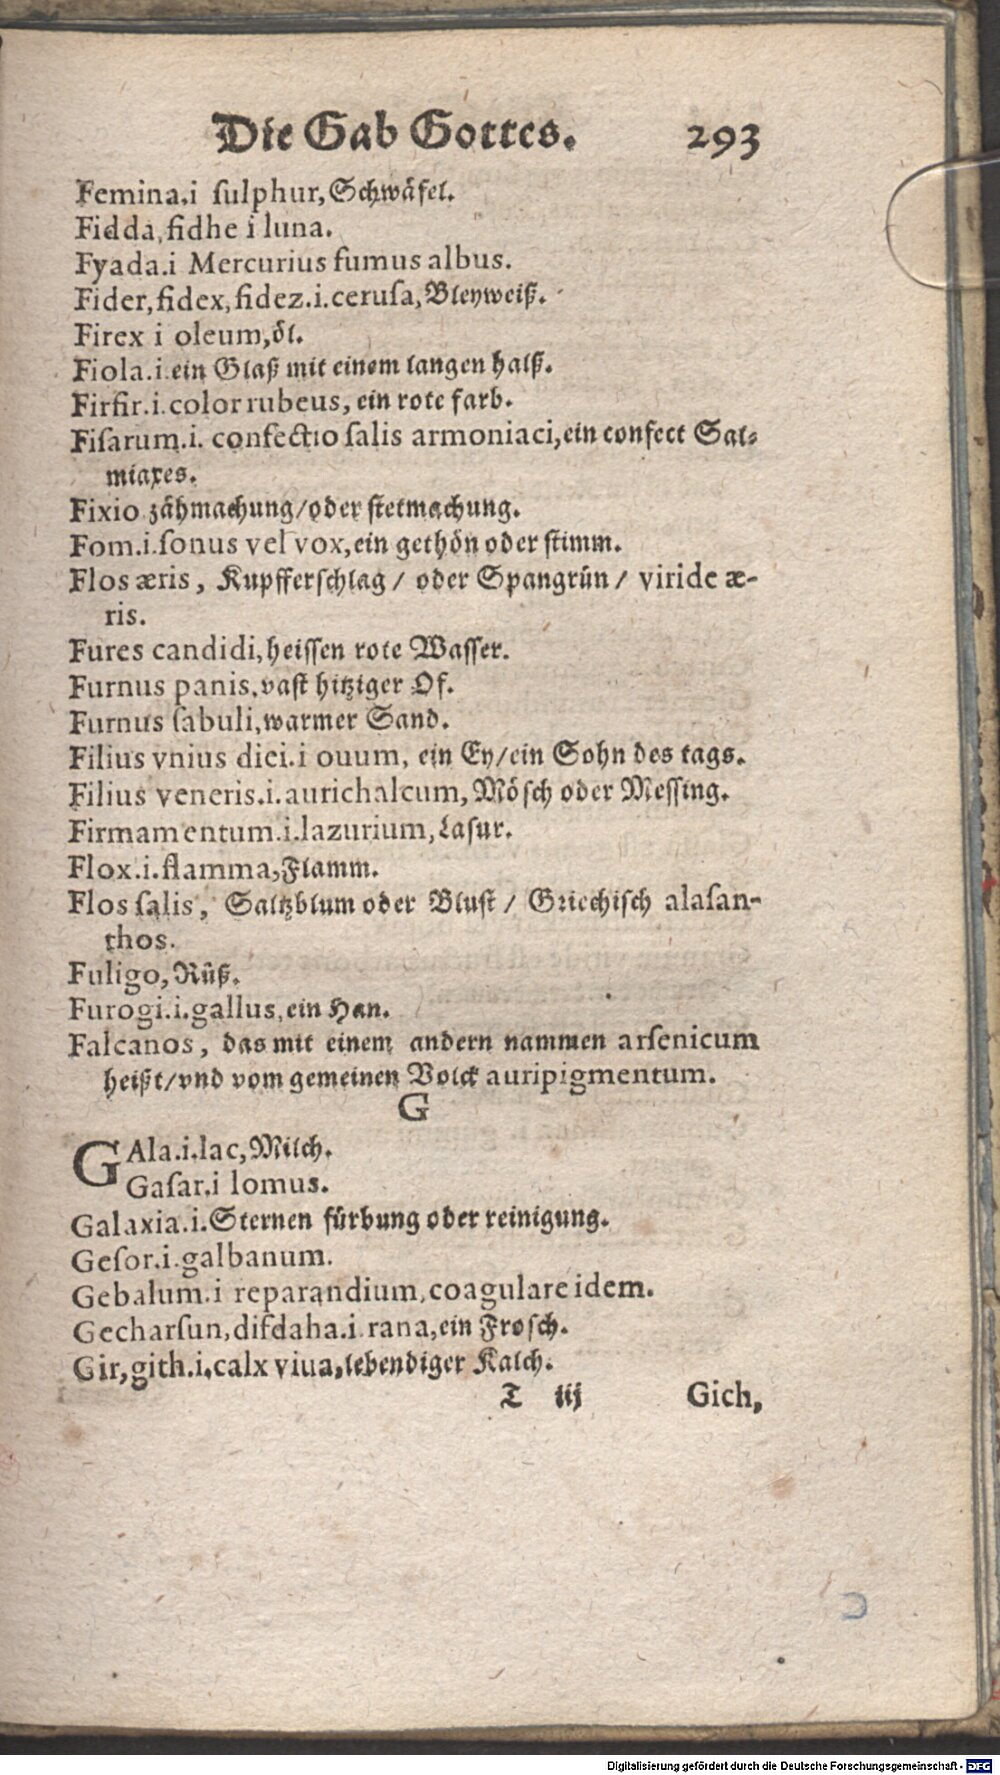 Die Gab Gottes. 293
Femina.i sulphur, Schwäfel.
Fidda, fidhe i luna.
Fyada.i Mercurius fumus albus.
Fider, fidex, fidez.i.cerusa, Bleyweiß.
Firex i oleum, öl.
Fiola.i.ein Glaß mit einem langen halß.
Firfir.i.color rubeus, ein rote farb.
Fisarum.i. confectio salis armoniaci, ein confect Sal⸗
miaxes.
Fixio zähmachung/oder stetmachung.
Fom.i.sonus vel vox, ein gethön oder stimm.
Flos æris, Kupfferschlag / oder Spangrün / viride æ-
ris.
Fures candidi, heissen rote Wasser.
Furnus panis, vast hitziger Of.
Furnus sabuli, warmer Sand.
Filius vnius diei.i ouum, ein Ey/ein Sohn des tags.
Filius veneris.i.aurichalcum, Mösch oder Messing.
Firmamentum.i.lazurium, Lasur.
Flox.i.flamma, Flamm.
Flos salis, Saltzblum oder Blust / Griechisch alasan-
thos.
Fuligo, Rüß.
Furogi.i.gallus, ein Han.
Falcanos, das mit einem andern nammen arsenicum
heißt/vnd vom gemeinen Volck auripigmentum.
G
GAla.i.lac, Milch.
Gasar.i lomus.
Galaxia.i.Sternen fürbung oder reinigung.
Gesor.i.galbanum.
Gebalum.i reparandium, coagulare idem.
Gecharsun, disdaha.i.rana, ein Frosch.
Gir, gith.i.calx viua, lebendiger Kalch.
T iij Gich,
Digitalisierung gefördert durch die Deutsche Forschungsgemeinschaft - DFG